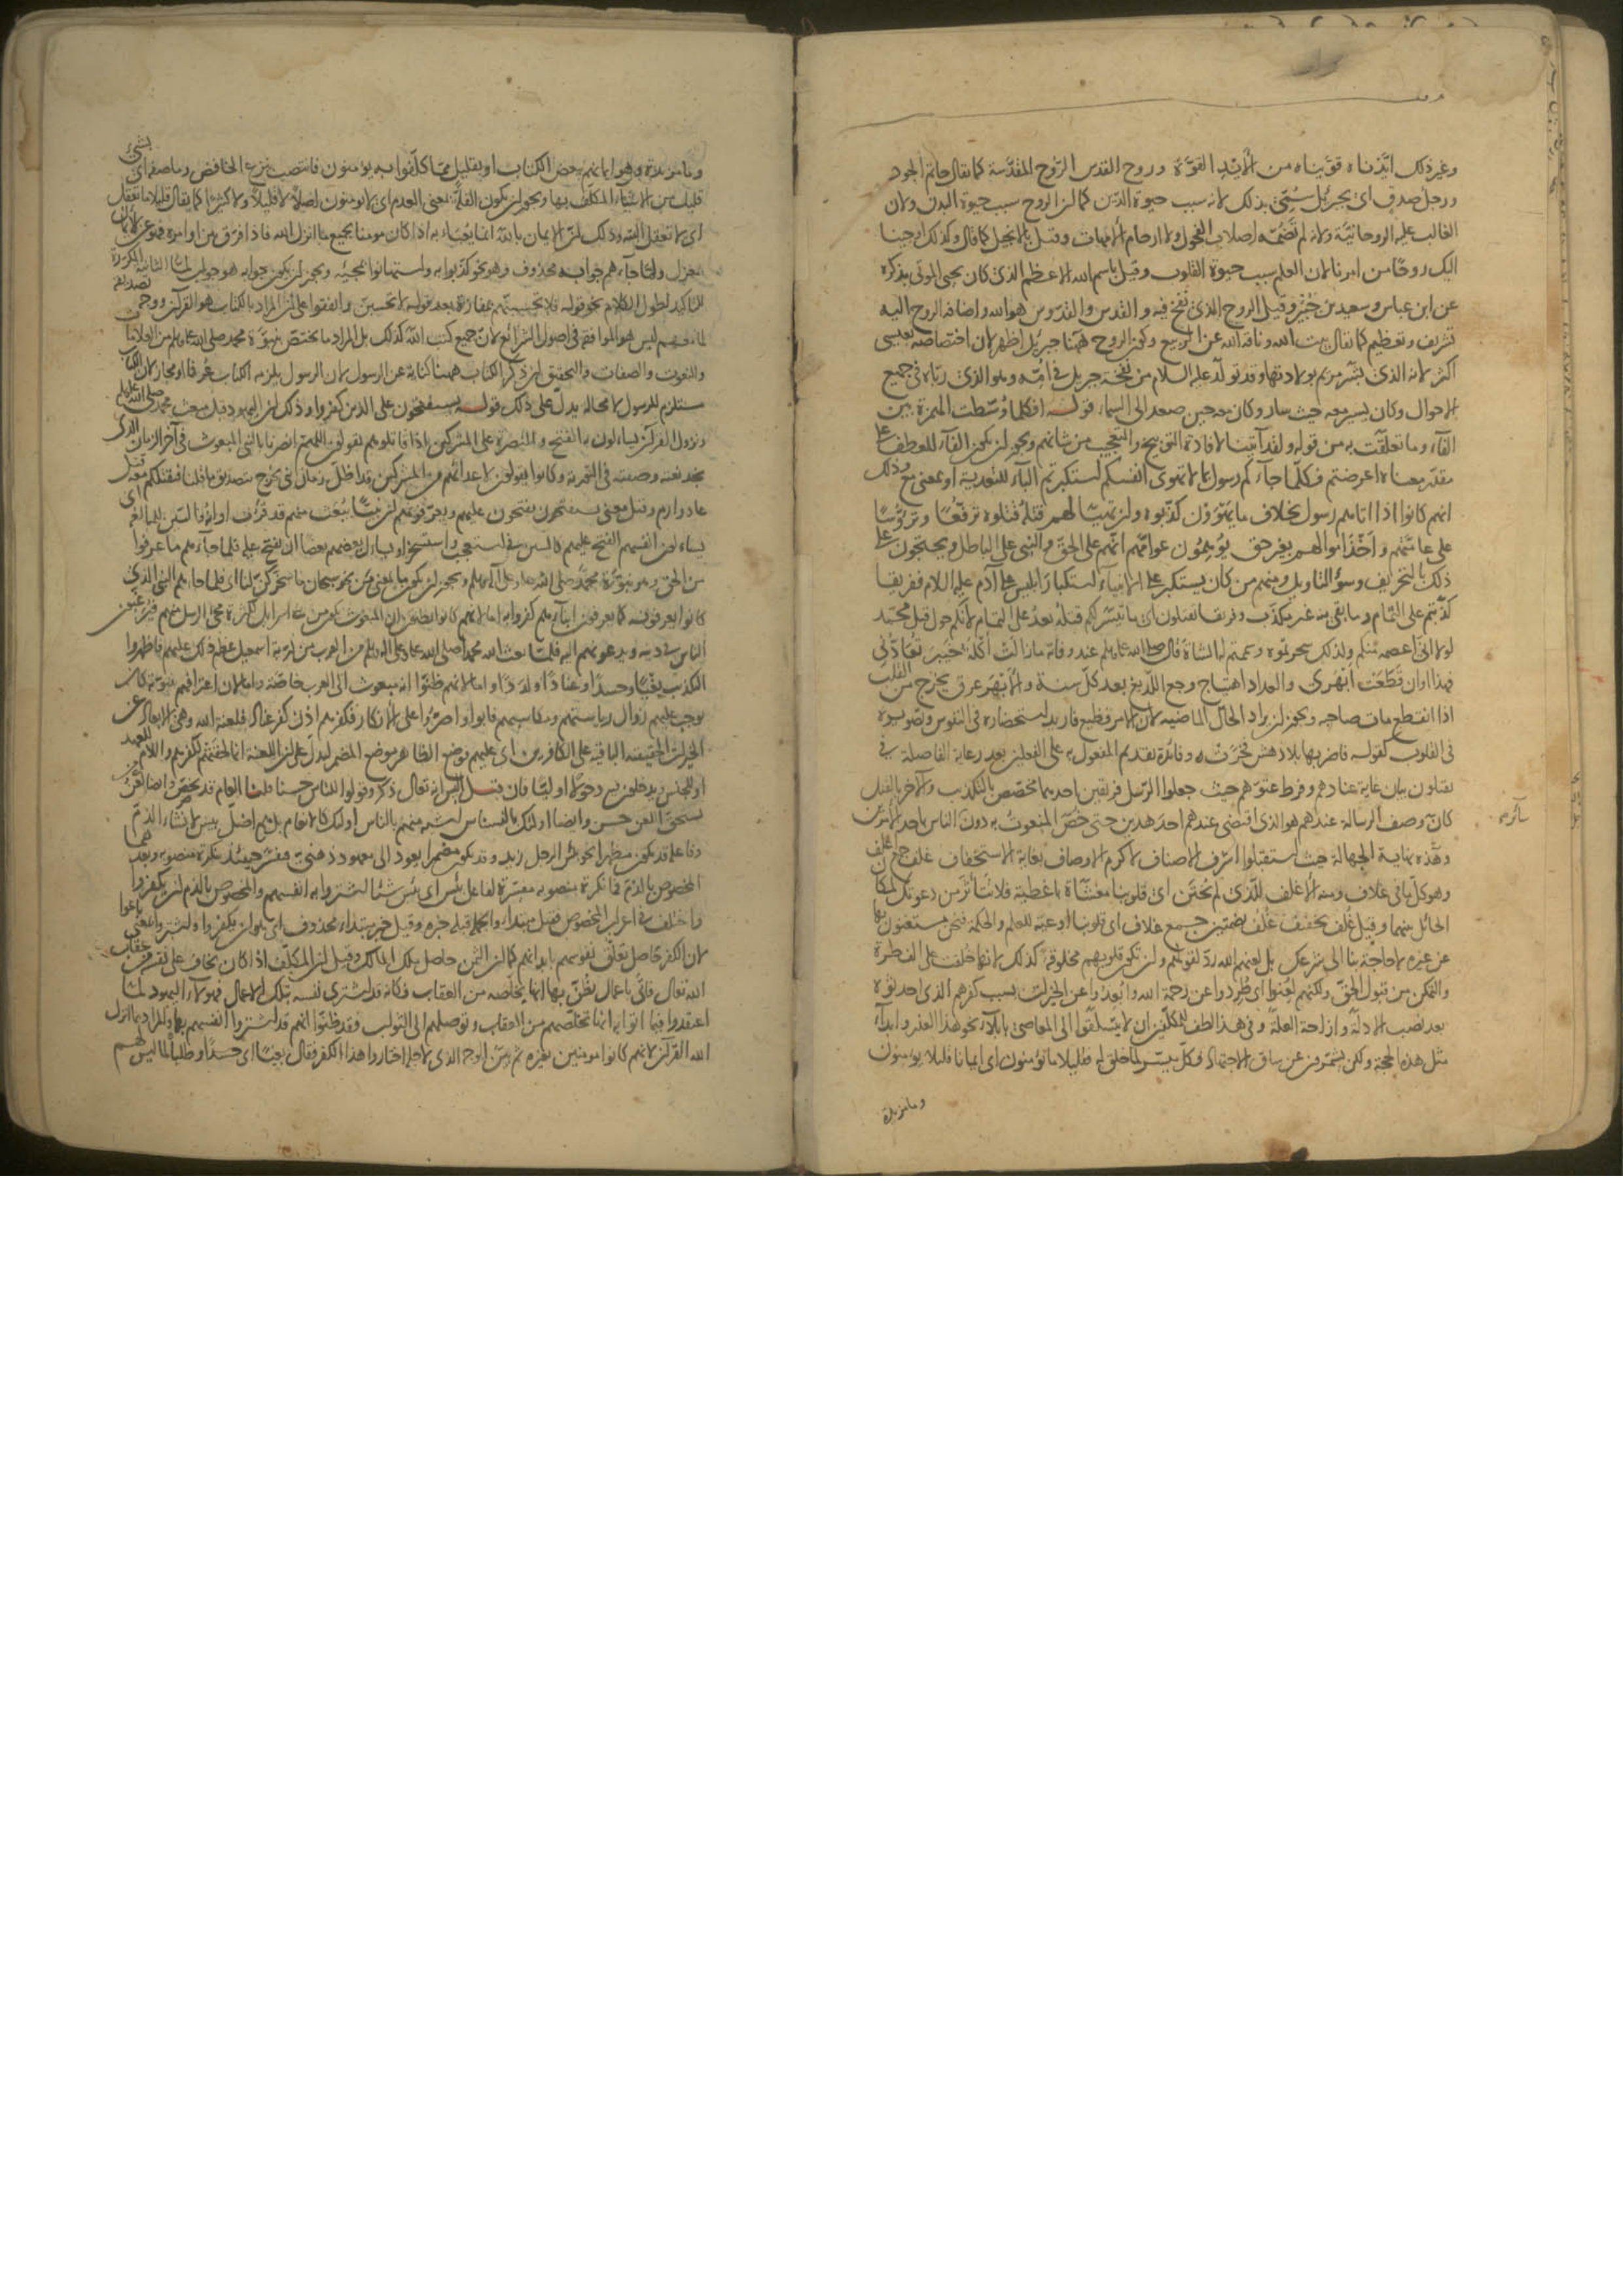 وغير ذلك ايّدناه قوّيناه من الأيد القوّة وروح القدس الرّوح المقدّسة كما يقال حاتم الجود
ورجل صدق اى بجبرئيل سُمّى بذلك لانه سبب حيوة الدّين كما ان الروح سبب حيوة البدن ولان
الغالب عليه الروحانيّة ولانه لم تضمّه اصلاب الفحول ولا ارحام الأمهات وقيل بالانجيل كما قال وكذلك اوحينا
اليك روحًا من امرنا لان العلم سبب حيوة القلوب وقيل باسم الله الاعظم الذى كان يحيى الموتى بذكره
عن ابن عباس وسعيد بن جُبَيْر وقيل الروح الذى نفخ فيه والقدس والقدّوس هو الله واضافة الروح اليه
تشريف وتعظيم كما يقال بيت الله وناقة الله عن الربيع وكون الروح ههنا جبرئيل اظهر لان اختصاصه بعيسى
اكثر لانه الذى بشّر مريم بولادتها وقد تولّد عليه السلام من نفخة جبريل فى امّه وهو الذى ربّاه فى جميع
الاحوال وكان يسير معه حيث سار وكان معه حين صعد الى السماء قوله افكلما وُسّطت الهمزة بين
الفآء وما تعلّقت به من قوله ولقد آتينا لافادة التوبيخ والتعجيب من شانهم ويجوز ان يكون الفآء للعطف على
مقدّر معناه اعرضتم فكلّما جآءكم رسول بما لا تهوى انفسكم استكبرتم البآء للتعدية او بمعنى مع وذلك
انهم كانوا اذا اتاهم رسول بخلاف ما يهوَوْن كذّبوه وان تهيّا لهم قتله قتلوه ترفّعًا وترؤّسًا
على عامّتهم واخذ اموالهم بغير حق يُوهِمُون عوامّهم انّهم على الحقّ والنبى على الباطل ويحتجّون على
ذلك بالتحريف وسؤ التاويل ومنهم من كان يستكبر على الانبياء استكبار ابليس على آدم عليه السلام ففريقا
كذّبتم على التمام وما بقى منه غير مكذّب وفريقا تقتلون اى ما تيسّر لكم قتله بعدُ على التمام لانّكم حول قتل محمّد
لولا انى اعصمه منكم ولذلك سحرتموه وسممتم له الشاة قال صلى الله عليه وسلم عند وفاته ما زالت اكلة خيبر تعادّنى
فهذا اوان قَطَعَت اَبْهَرى والعداد اهتياج وجع اللّديغ بعد كلّ سنة والأبهَر عرق يخرج من القلب
اذا انقطع مات صاحبه ويجوز ان يراد الحال الماضية لان الامر فظيع فاريد استحضاره فى النفوس وتصويره
فى القلوب كقوله فاضربها بلا دهش فخرّت وفائدة تقديم المفعول به على الفعلين بعد رعاية الفاصلة فى
تقتلون بيان غاية عنادهم وفرط عتوّهم حيث جعلوا الرسل فريقين احدهما مخصّص بالتكذيب والآخر بالقتل
كانّ وصف الرسالة عندهم هو الذى اقتضى عندهم احد هذين حتى خصّ المنعوت به دون الناس باحد الامرين
وهذه نهاية الجهالة حيث استقبلوا اشرف الاصناف لاكرم الاوصاف بغاية الاستخفاف غلف جمع اغلف
وهو كلّ ما فى غلاف ومنه الأغلف للّذى لم يُختَن اى قلوبنا مغشّاة باغطية فلا نتأثر من دعوتك لمكان
الحائل بينهما وقيل غُلْف تخفيف غُلُف بضمتين جمع غلاف اى قلوبنا اوعية للعلم والحكمة فنحن مستغنون بها
عن غيره لا حاجة بنا الى شرعك بل لعنهم الله ردّ لقولهم وان تكون قلوبهم مخلوقة كذلك لانها خلقت على الفطرة
والتمكن من قبول الحقّ ولكنهم لُعنوا اى طُردوا عن رحمة الله وابُعدوا عن الخيرات بسبب كفرهم الذى احدثوه
بعد نصب الادلّة وازاحة العلّة وفى هذا لطف للمكلّفين ان لا يتسلّقوا الى المعاصى بابلآء نحو هذا العذر وابدآء
مثل هذه الحجة ولكن يشمّرون عن ساق الاجتهاد فكلّ ميسّر لما خلق له فقليلا ما يؤمنون اى ايمانا قليلا يؤمنون
وما مزيدة
وما مزيدة وهو ايمانهم ببعض الكتاب او بقليل ممّا كلّفوا به يؤمنون فانتصب بنزع الخافض وما صفة اى بشئ
قليل من الاشياء المكلّف بها ويجوز ان يكون القلّة بمعنى العدم اى لا يؤمنون اصلًا لا قليلًا ولا كثيرًا كما يقال قليلا ما تفعل
اى لا تفعل البتّة وذلك لانّ الايمان بالله انما يُعبأ به اذا كان مومنا بجميع ما انزل الله فاذا فرّق بين اوامره فهو عن الايمان
بمعزل ولمّا جآءهم جوابه محذوف وهو نحو كذّبوا به واستهانوا بمجيئه ويجوز ان يكون جوابه هو جواب لمّا الثانية المكررة
للتاكيد لطول الكلام نحو قوله فلا تحسبنّهم بمفازة بعد قوله لا تحسبنّ واتفقوا على ان المراد بالكتاب هو القرآن ووجه تصديقه
لما معهم ليس هو الموافقة فى اصول الشرائع لانّ جميع كتب الله كذلك بل المراد ما يختصّ بنبوّة محمد صلى الله عليه وسلم من العلامات
والنعوت والصفات والتحقيق ان ذكر الكتاب ههنا كناية عن الرسول لان الرسول يلزمه الكتاب عُرفًا او مجاز لان الكتاب
مستلزم للرسول لا محالة يدلّ على ذلك قوله يستفتحون على الذين كفروا وذلك ان اليهود قبل مبعث محمد صلى الله عليه وسلم
ونزول القرآن يسالون به الفتح والنصرة على المشركين اذا قاتلوهم يقولون اللهم انصرنا بالنبى المبعوث فى آخر الزمان الذى
نجد نعته وصفته فى التورية وكانوا يقولون لاعدائهم من المشركين قد اظلّ زمان نبى يخرج بتصديق ما قلنا فنقتلكم معه قتل
عاد وارم وقيل معنى يستفتحون يفتحون عليهم ويعرّفونهم ان نبيًّا يُبعَث منهم قد قرب اوانه والسّين للمبالغة اى
يسالون انفسهم الفتح عليهم كالسين فى استعجب واستسخر او يسال بعضهم بعضا ان يفتح عليه فلما جآءهم ما عرفوا
من الحق وهو نبوّة محمّد صلى الله عليه وعلى آله وسلم ويجوز ان يكون ما بمعنى مَن نحو سبحان ما سخّركنّ لنا اى فلما جاءهم النبى الذى
كانوا يعرفونه كما يعرفون ابناءهم كفروا به امّا لانهم كانوا يظنون ان المبعوث يكون من بنى اسرائيل لكثرة مجئ الرسل منهم فيُرغّبون
النّاس فى دينه ويدعونهم اليه فلمّا بعث الله محمدا صلى الله عليه وعلى آله وسلم من العرب من ذرّية اسمعيل عظم ذلك عليهم فاظهروا
التكذيب بغيًا وحسدًا وعنادًا ولددًا واما لانهم ظنّوا انه مبعوث الى العرب خاصّة واما لان اعترافهم بنبوّته كان
يوجب عليهم زوال رياستهم ومكاسبهم فابوا واصرّوا على الانكار فكفرهم اذن كفر عناد فلعنة الله وهى الابعاد عن
الخيرات الحقيقية الباقية على الكافرين اى عليهم فوضع الظاهر موضع المضمر ليدلّ على ان اللعنة انما لحقتهم لكفرهم واللام للعهد
او للجنس يدخلون فيه دخولًا اوليًّا فان قيل اليس انه تعالى ذكر وقولوا للناس حسنا قلنا العام قد يخصّ وايضا لعن من
يستحقّ اللعن حسن وايضا اولئك بالنسناس اشبه منهم بالناس اولئك كالانعام بل هم اضلّ بئس لانشاء الذّمّ
وفاعله قد يكون مظهرا نحو بئس الرجل زيد وقد يكون مضمرا يعود الى معهود ذهنىّ ويفسّر حينئذ بنكرة منصوبة وبعدهما
المخصوص بالذمّ فما نكرة منصوبة مفسّرة لفاعل بئس اى بئس شيئا اشتروا به انفسهم والمخصوص بالذم ان يكفروا
واختلف فى اعراب المخصوص فقيل مبتداء والجملة قبله خبره وقيل خبر مبتداء محذوف اى هو ان يكفروا واشتروا بمعنى باعوا
لان الكفر حاصل تعلّق نفوسهم بابدانهم كما ان الثمن حاصل ملك المالك وقيل ان المكلّف اذا كان يخاف على نفسه من عقاب
الله تعالى فاتى باعمال يظنّ بها انها يخلّصه من العقاب فكانه قد اشترى نفسه بتلك الاعمال فهولاء اليهود لمّا
اعتقدوا فيما اتوا به انها تخلّصهم من العقاب وتوصلهم الى الثواب فقد ظنّوا انهم قد اشتروا انفسهم بها والمراد بما انزل
الله القرآن لانهم كانوا مومنين بغيره ثم بيّن الوجه الذى لاجله اختاروا هذا الكفر فقال بغيًا اى حسدًا وطلبًا لما ليس لهم